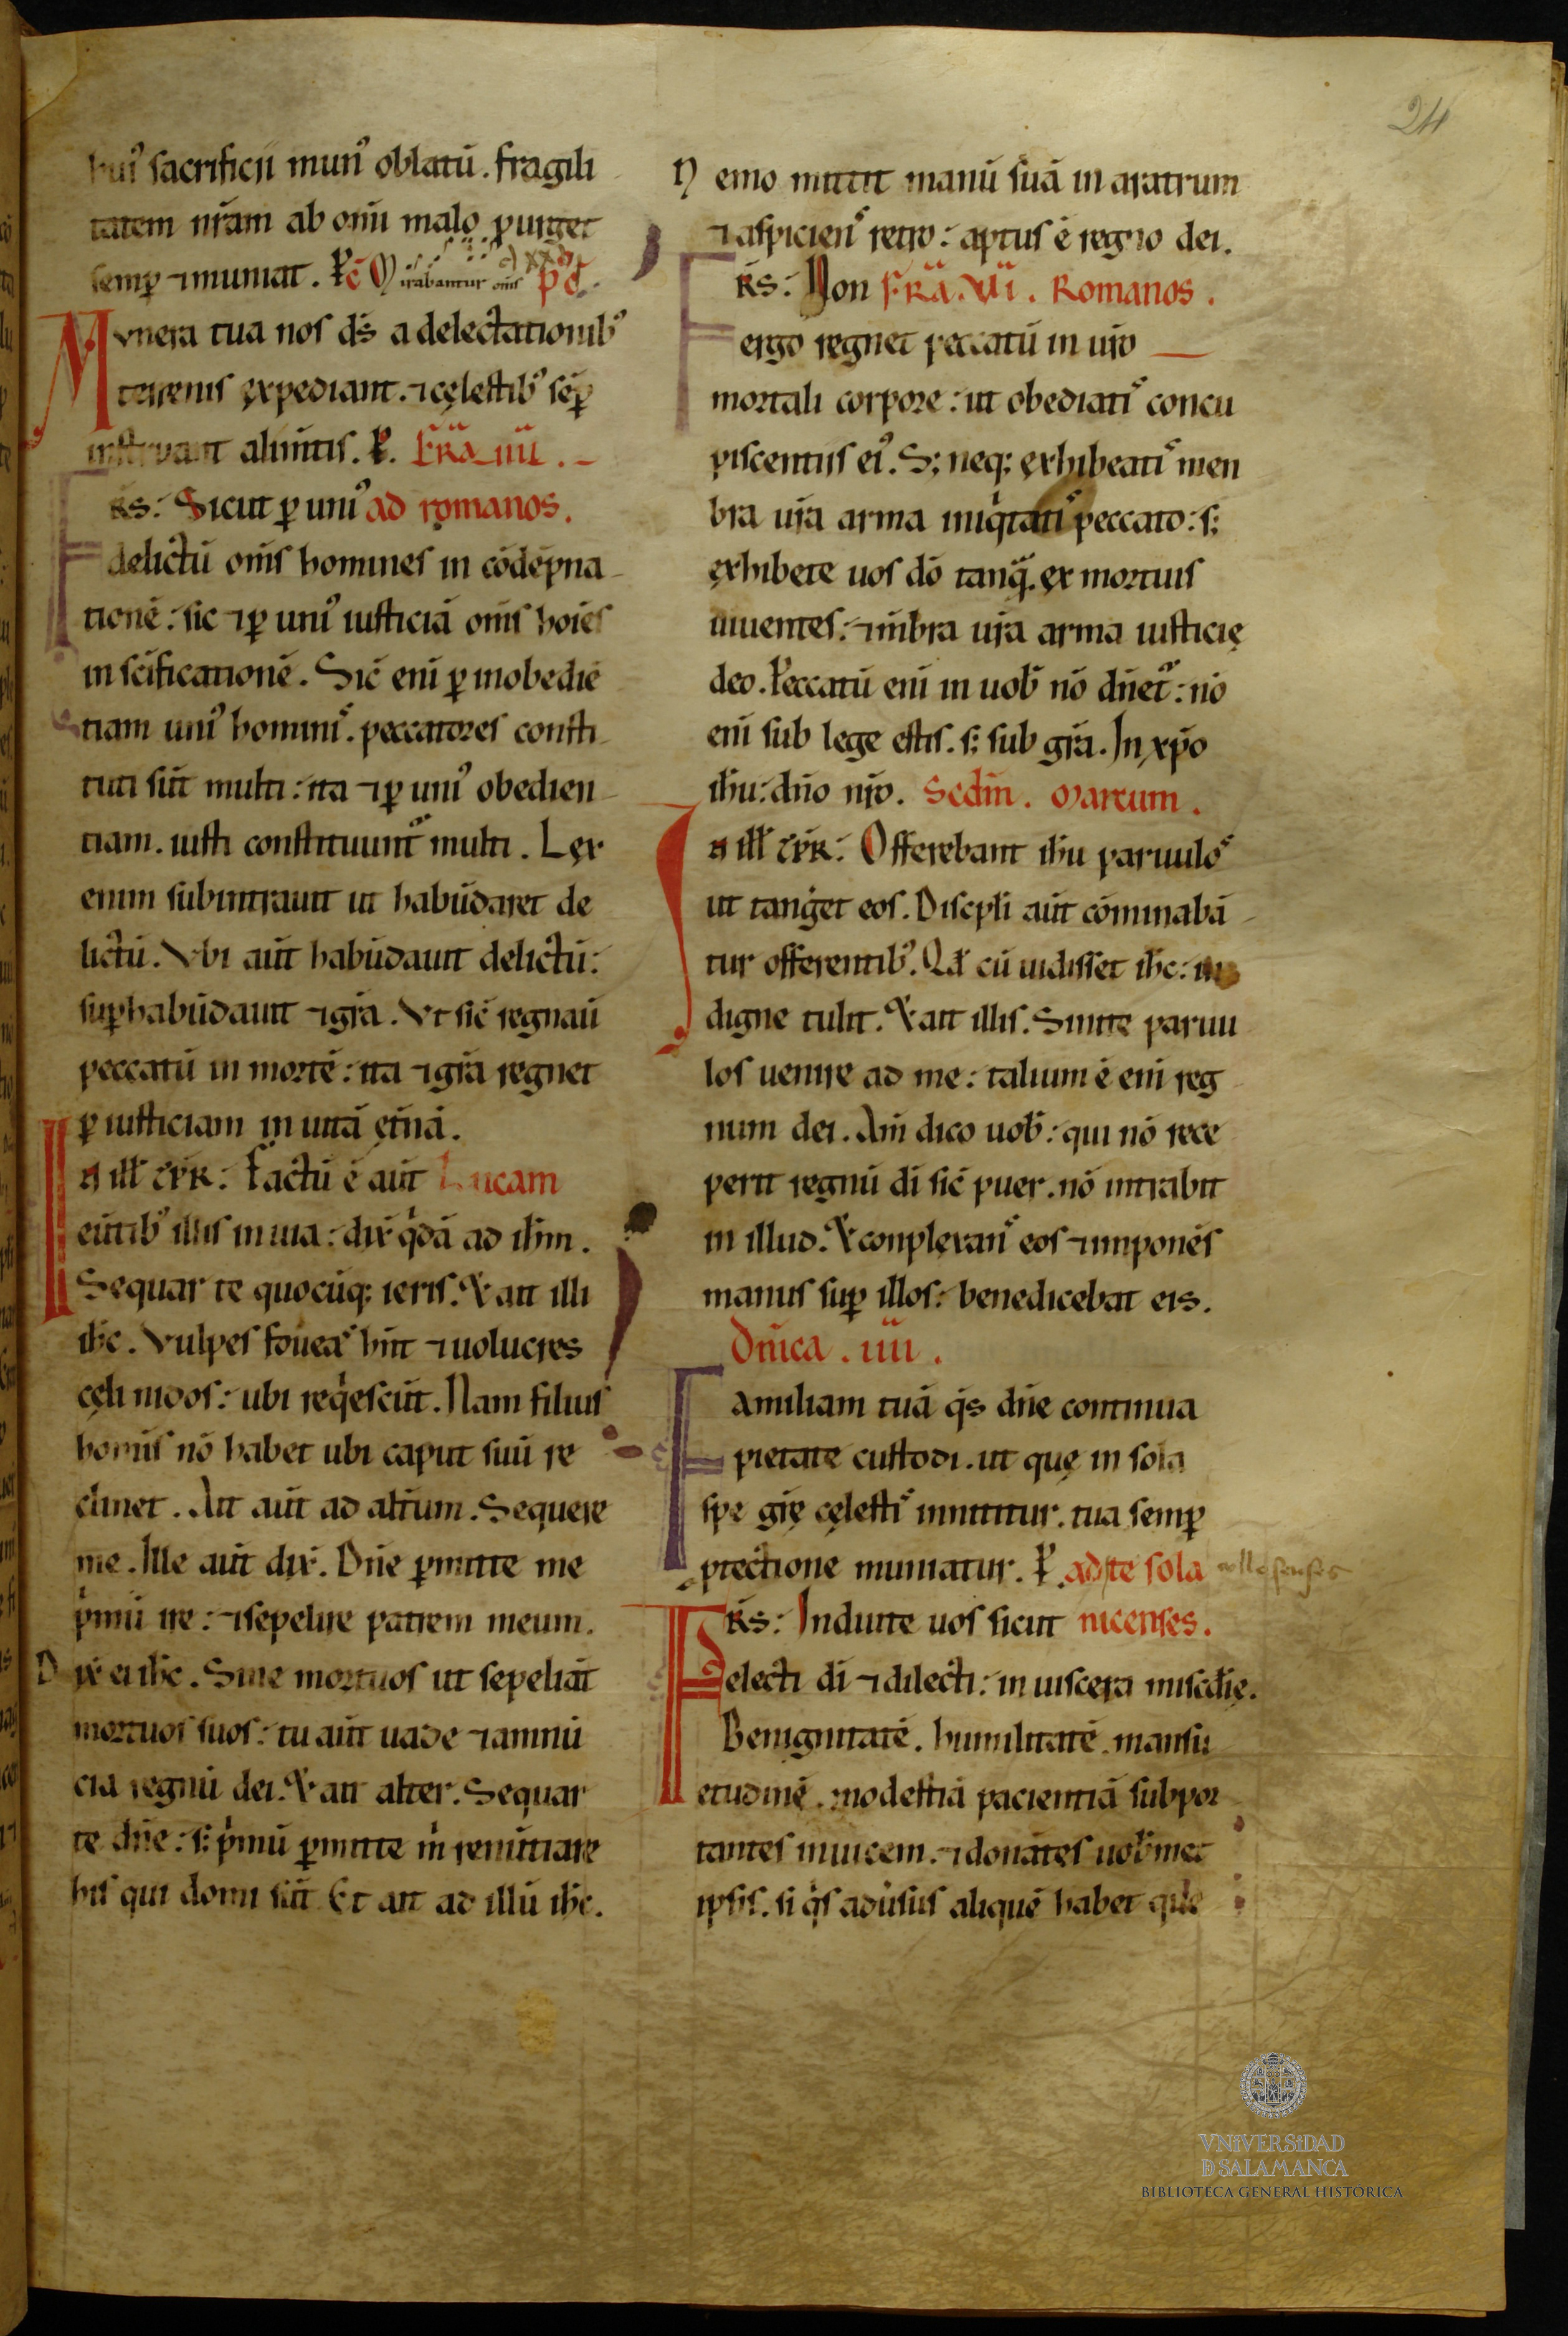 24
huiꝰ sacrificii munꝰ oblatū. fragili
tatem nr̄am ab om̄i malo purget
semꝑ ⁊ muniat. P̄c Mirabantur om̄s pc̄.
Munera tua nos ds̄ a delectationibꝰ
terrenis expediant. ⁊ cęlestibꝰ sēꝑ
instruant alim̄tis. P. Fr̄a iiii.
Frs̄: Sicut ꝑ uniꝰ ad romanos.
delictū om̄s homines in cōdēpna
tionē: sic ⁊ ꝑ uniꝰ iusticiā om̄s hoīes
in sc̄ificationē. Sic̄ eni ꝑ inobediē
tiam uniꝰ hominis. peccatores consti
tuti sūt multi: ita ⁊ ꝑ uniꝰ obedien
tiam. iusti constituunt̄ multi. Lex
enim subintrauit ut habūdaret de
lictū. Vbi aūt habūdauit delictū:
suꝑhabūdauit ⁊ gr̄a. Vt sic̄ regnaū
peccatū in mortē: ita ⁊ gr̄a regnet
ꝑ iusticiam in uitā et̄nā.
In ill̄ tp̄r: Factū ē aūt Lucam
eūtibꝰ illis in uia: dix̄ q̇dā ad ih̄m.
Sequar te quocūq; ieris. Et ait illi
ih̄c. Vulpes foueas hn̄t ⁊ uolucres
cęli nidos: ubi reqⁱescūt. Nam filius
homīs nō habet ubi caput suū re
clinet. Ait aūt ad alt̄um. Sequere
me. Ille aūt dix̄. Dn̄e ꝑmitte me
pⁱmū ire: ⁊ sepelire patrem meum.
Dix̄ ei ih̄c. Sine mortuos ut sepeliāt
mortuos suos: tu aūt uade ⁊ annū
cia regnū dei. Et ait alter. Sequar
te dn̄e: s; pⁱmū ꝑmitte m̄ renūtiare
his qui domi sūt. Et ait ad illū ih̄c.
Nemo mittit manū suā in aratrum
⁊ aspiciens retro: aptus ē regno dei.
Frs̄: Non Fr̄a. vi. Romanos.
ergo regnet peccatū in ur̄o
mortali corpore: ut obediatis concu
piscentiis eiꝰ. S; neq; exhibeatis men
bra ur̄a arma iniqⁱtati peccato: s;
exhibete uos dō tanq̄. ex mortuis
uiuentes: ⁊ mb̄ra ur̄a arma iusticię
deo. Peccatū eni in uob̄ nō dn̄et̄: nō
eni sub lege estis. s; sub gr̄a. In xp̄o
ih̄u: dn̄o nr̄o. Secdm̄. Marcum.
In ill̄ tp̄r: Offerebant ih̄u paruulos
ut tanget eos. Discpl̄i aūt cōminabā
tur offerentibꝰ. Qd̄ cū uidisset ih̄c: in
digne tulit. Et ait illis. Sinite paruu
los uenire ad me: talium ē eni reg
num dei. Am̄ dico uob̄: qui nō rece
perit regnū dī sic̄ puer. nō intrabit
in illud. Et conplexans eos ⁊ inponēs
manus suꝑ illos: benedicebat eis.
Dn̄ica. iiii.
Familiam tuā qs̄ dn̄e continua
pietate custodi. ut quę in sola
spe gr̄ę cęlestis innititur. tua semꝑ
ptectione muniatur. P. ad te sola collosenses
Frs̄: Induite uos sicut nicenses.
electi dī ⁊ dilecti: in uiscera misc̄dię.
Benignitatē. humilitatē. mansu
etudinē. modestiā pacientiā subpor
tantes inuicem. ⁊ donātes uob̄met
ipsis. si qⁱs adūsus aliquē habet que
VNiVERSiDAD
D SALAMANCA
BIBLIOTECA GENERAL HISTÓRICA